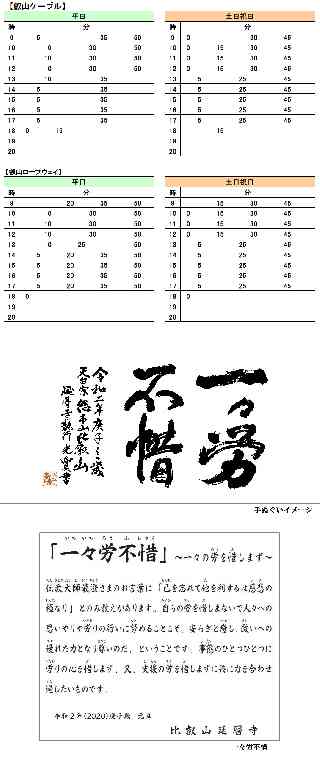 【叡山ケーブル】
平日
時 分
9 5 35 50
10 0 30 50
11 10 30 50
12 0 30 50
13 10 35
14 5 35
15 5 35
16 5 35
17 5 35
18 0 15
19
20
土日祝日
時 分
9 0 30 45
10 0 15 30 45
11 0 15 30 45
12 0 15 30 45
13 5 25 45
14 5 25 45
15 5 25 45
16 5 25 45
17 5 25 45
18 15
19
20
【叡山ロープウェイ】
平日
時 分
9 20 35 50
10 0 30 50
11 10 30 50
12 10 30 50
13 0 25 50
14 5 20 35 50
15 5 20 35 50
16 5 20 35 50
17 5 20 35 50
18 0
19
20
土日祝日
時 分
9 15 30 45
10 0 15 30 45
11 0 15 30 45
12 0 15 30 45
13 5 25 45
14 5 25 45
15 5 25 45
16 5 25 45
17 5 25 45
18 0
19
20
一々労
不惜
令和二年庚子之歳
天台宗総本山比叡山
手ぬぐいイメージ
「一々労不惜」 ～一々の労を惜しまず～
伝教大師最澄さまのお言葉に「己を忘れて他を利するは慈悲の
極なり」とのみ教えがあります。自らの労を惜しまないで人々への
思いやりや労りの行いに努めることこそ、安らぎと癒し、救いへの
優れた力となり尊いのだ、ということです。事態のひとつひとつに
労りの心を惜しまず、又、支援の労を惜しまずに共に力を合わせ
比叡山延暦寺
一々労不惜